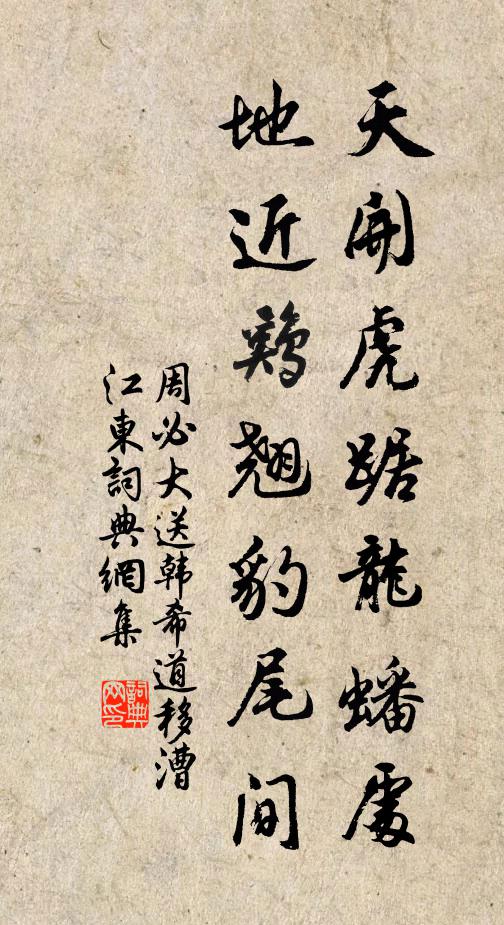 天開虎踞龍蟠處
地近鷄翹豹尾間
周必大送韩希道移漕
江東詞典網集
詞典
网印